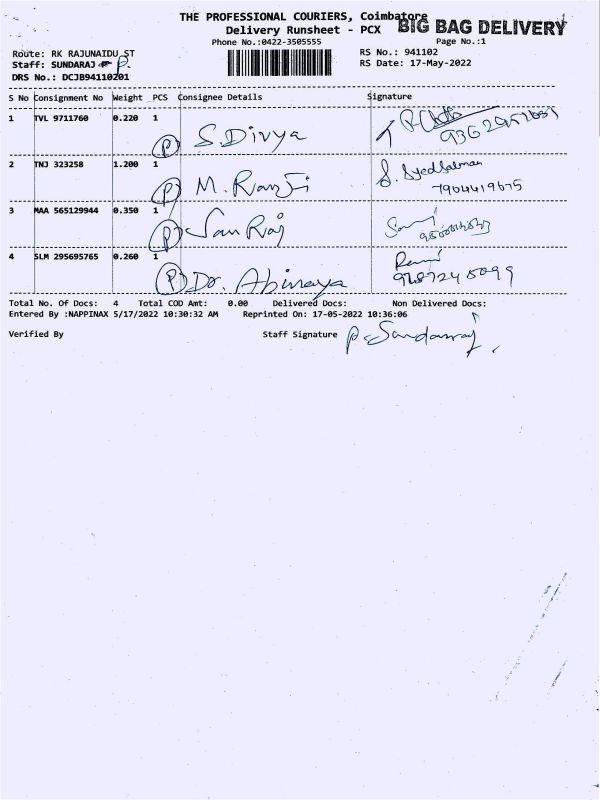 THE PROFESSIONAL COURIERS, Coimbatore
BIG BAG DELIVERY
Delivery Runsheet - PCX
Phone No.:0422-3505555
Page No.:1
Route: RK RAJUNAIDU ST
RS No.: 941102
Staff: SUNDARAJ P.
RS Date: 17-May-2022
DRS No.: DCJB94110201
S No Consignment No Weight PCS Consignee Details Signature
1 TVL 9711760 0.220 1
P S. Divya
2 TNJ 323258 1.200 1 S. Syed Salman
P M. Ranji 7904419675
3 MAA 565129944 0.350 1
P San Raj
4 SLM 295695765 0.260 1
P Dr. Abinaya
Total No. Of Docs: 4 Total COD Amt: 0.00 Delivered Docs: Non Delivered Docs:
Entered By :NAPPINAX 5/17/2022 10:30:32 AM Reprinted On: 17-05-2022 10:36:06
Verified By Staff Signature P. Sundarraj